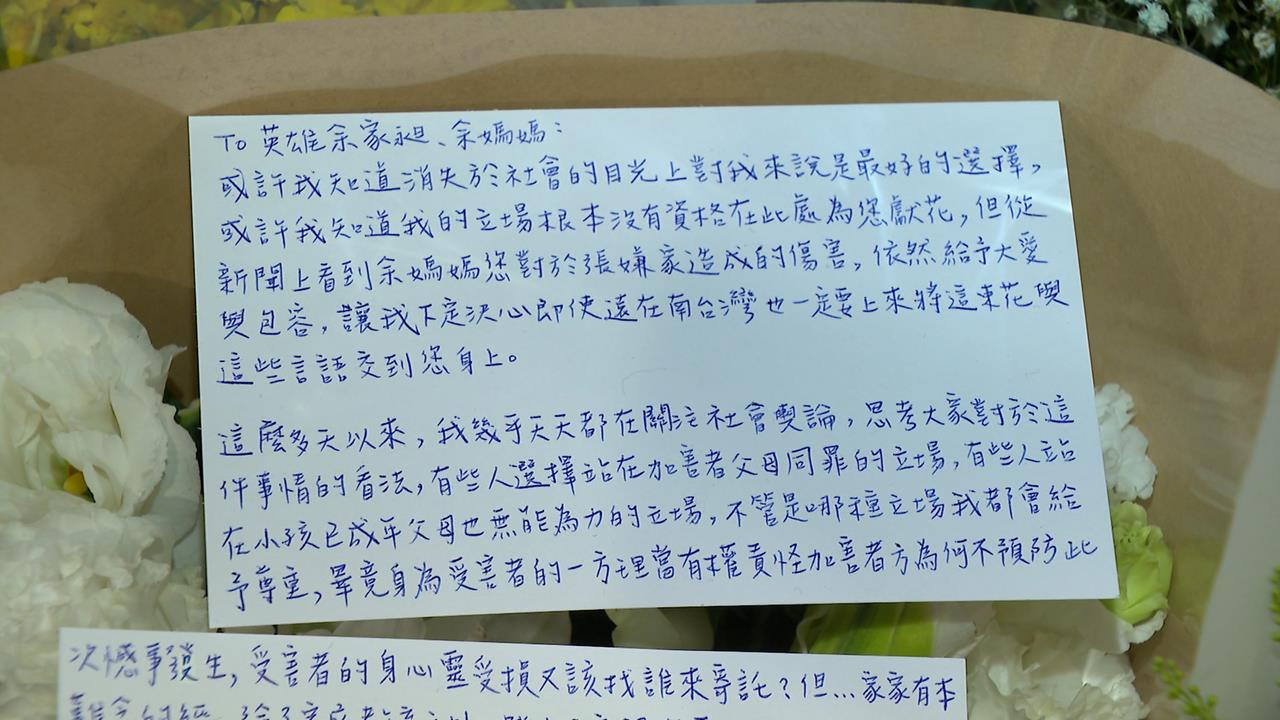 To 英雄余家昶、余媽媽：
或許我知道消失於社會的目光上對我來說是最好的選擇，
或許我知道我的立場根本沒有資格在此處為您獻花，但從
新聞上看到余媽媽您對於張嫌家造成的傷害，依然給予大愛
與包容，讓我下定決心即使遠在南台灣也一定要上來將這束花與
這些言語交到您身上。
這麼多天以來，我幾乎天天都在關注社會輿論，思考大家對於這
件事情的看法，有些人選擇站在加害者父母同罪的立場，有些人站
在小孩已成年父母也無能為力的立場，不管是哪種立場我都會給
予尊重，畢竟身為受害者的一方理當有權責怪加害者方為何不預防此
次憾事發生，受害者的身心靈受損又該找誰來寄託？但...家家有本
難念的經